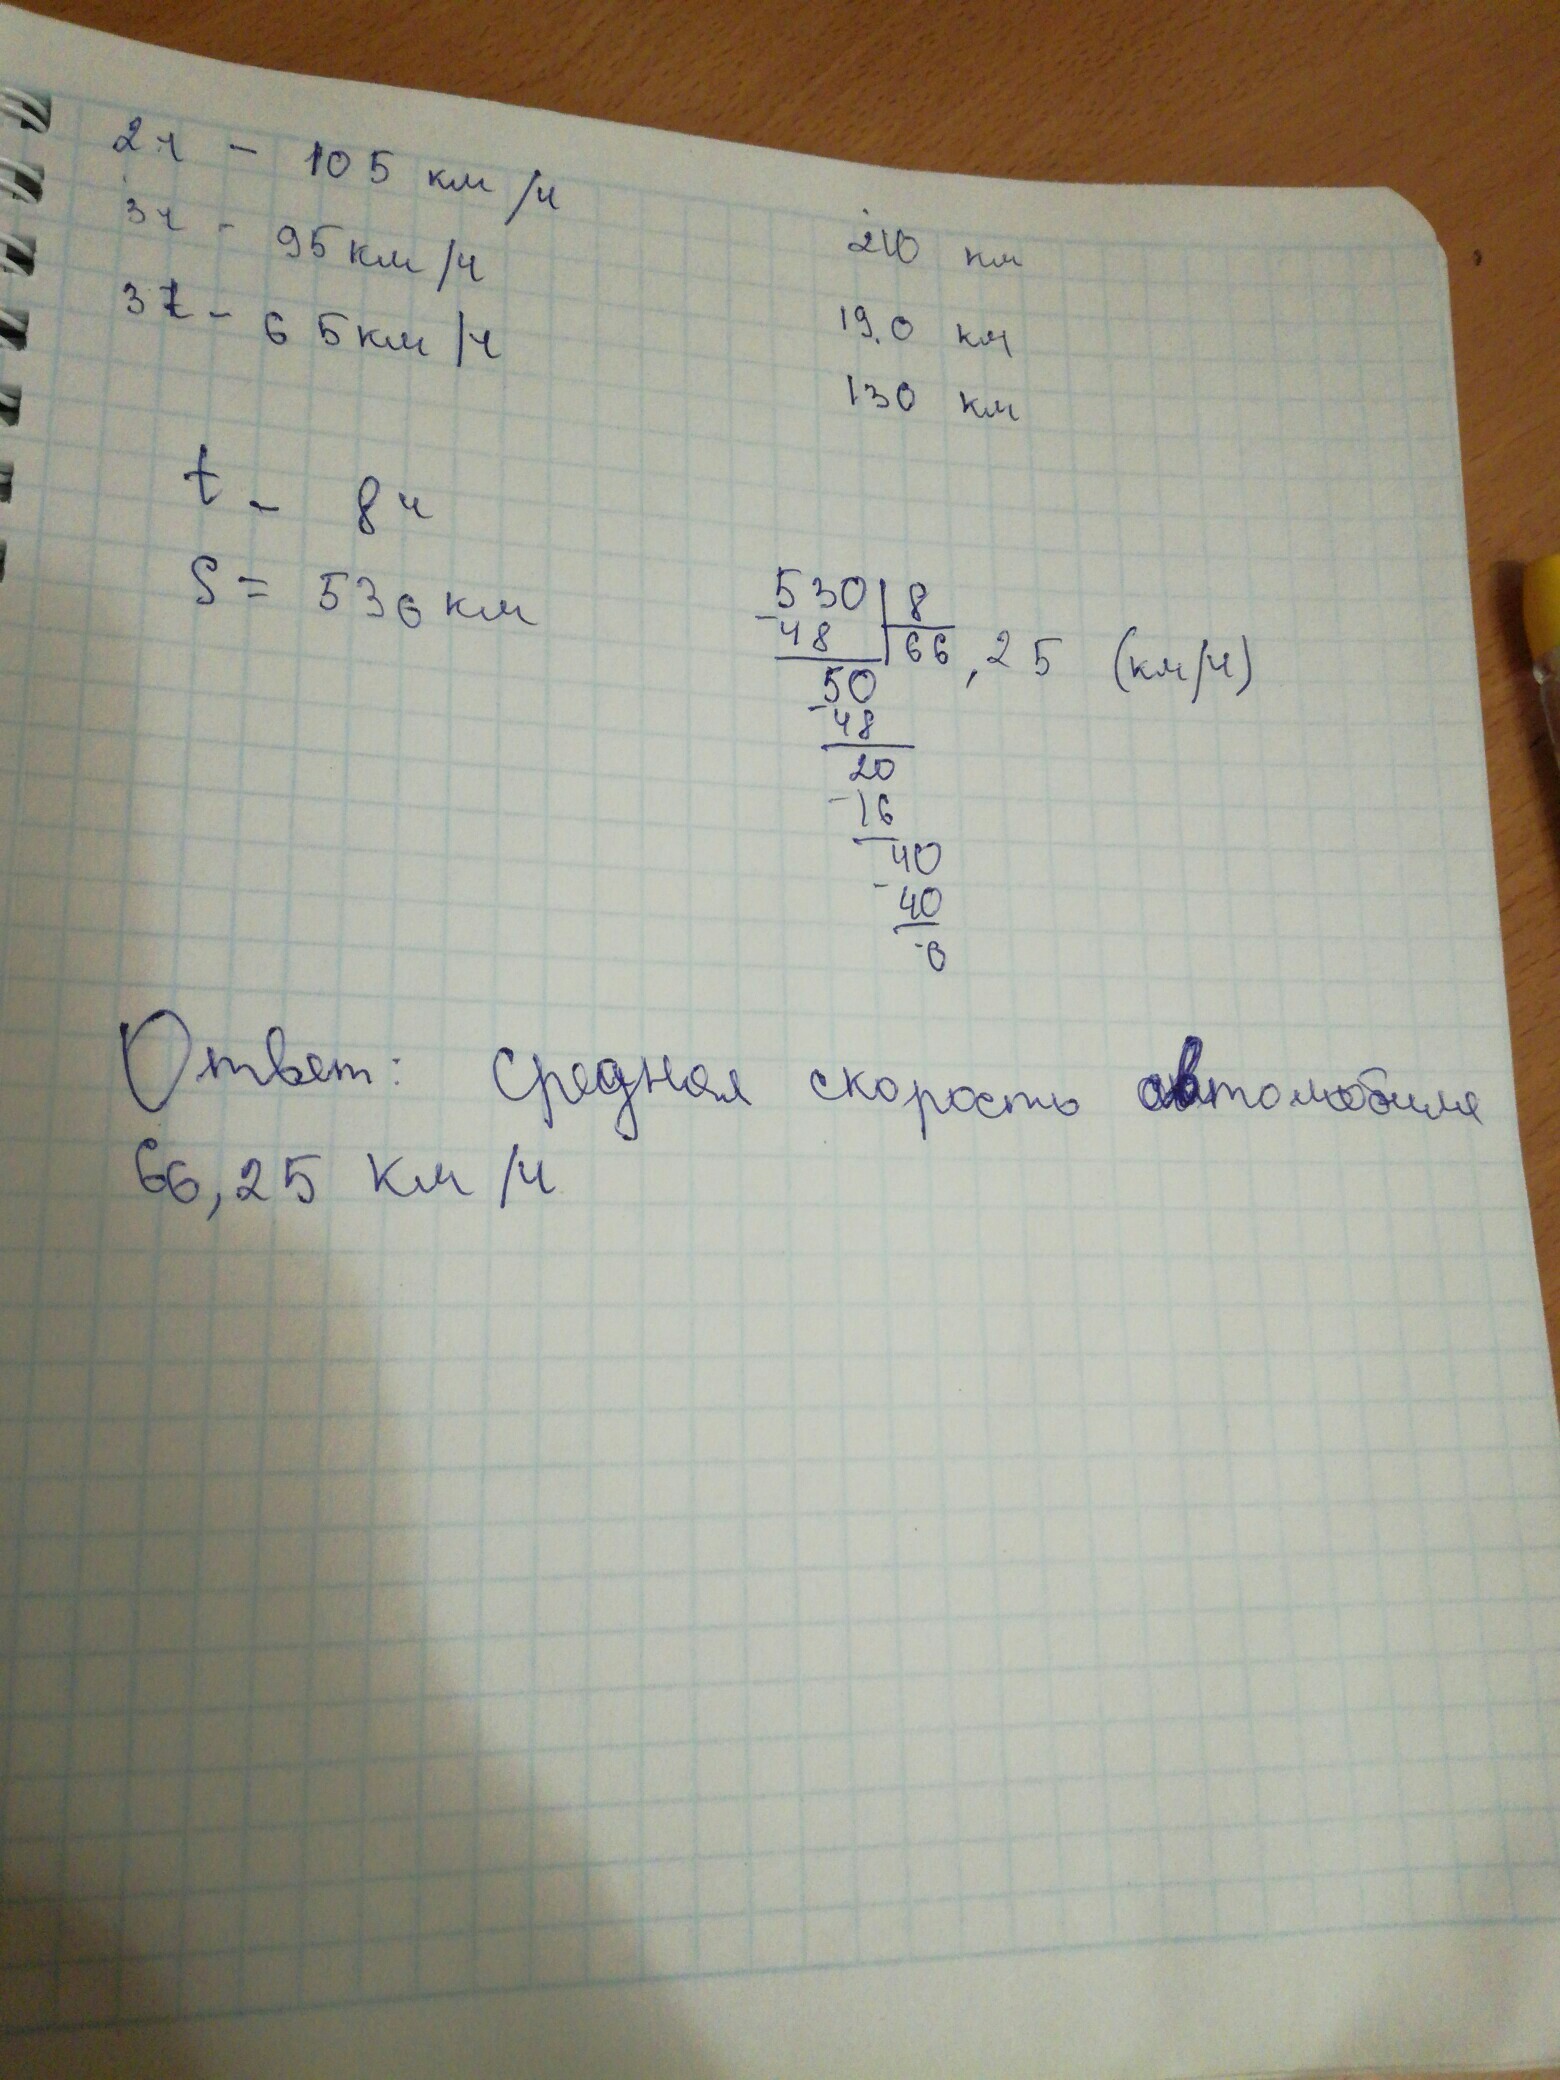 2ч - 105 км/ч
3ч - 95 км/ч
3ч - 65 км/ч
210 км
190 км
130 км
t - 8ч
S = 530 км
530 | 8
- 48 | 66,25 (км/ч)
50
- 48
20
- 16
40
- 40
0
Ответ: средняя скорость автомобиля
66,25 км/ч